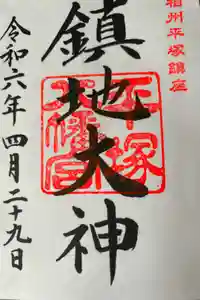 相州平塚鎮座
鎮地大神
平塚八幡宮
令和六年四月二十九日